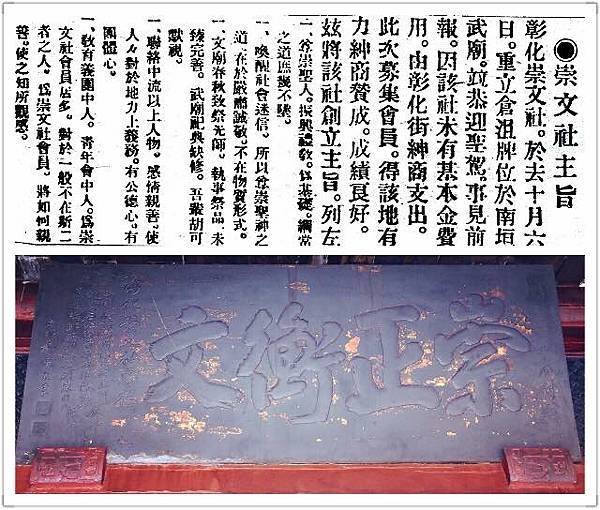 ◉崇文社主旨
彰化崇文社。於去十月六
日。重立倉沮牌位於南垣
武廟。竝恭迎聖駕。事見前
報。因該社未有基本金費
用。由彰化街紳商支出。
此次募集會員。得該地有
力紳商贊成。成績良好。
玆將該社創立主旨。列左
一、尊崇聖人。振興禮敎。爲基礎。綱常
之道庶幾不墜。
一、喚醒社會迷信。所以尊崇聖神之
道。在於嚴肅誠敬。不在物質形式。
一、文廟春秋致祭先師。執事祭品。未
臻完善。武廟祀典缺修。吾輩胡可
默視。
一、聯絡中流以上人物。感情親善。使
人々對於地方上義務。有公德心。有
團體心。
一、敎育義團中人。靑年會中人。爲崇
文社會員居多。對於一般不在斯二
者之人。爲崇文社會員。將如何親
善。使之知所觀感。
崇正衡文